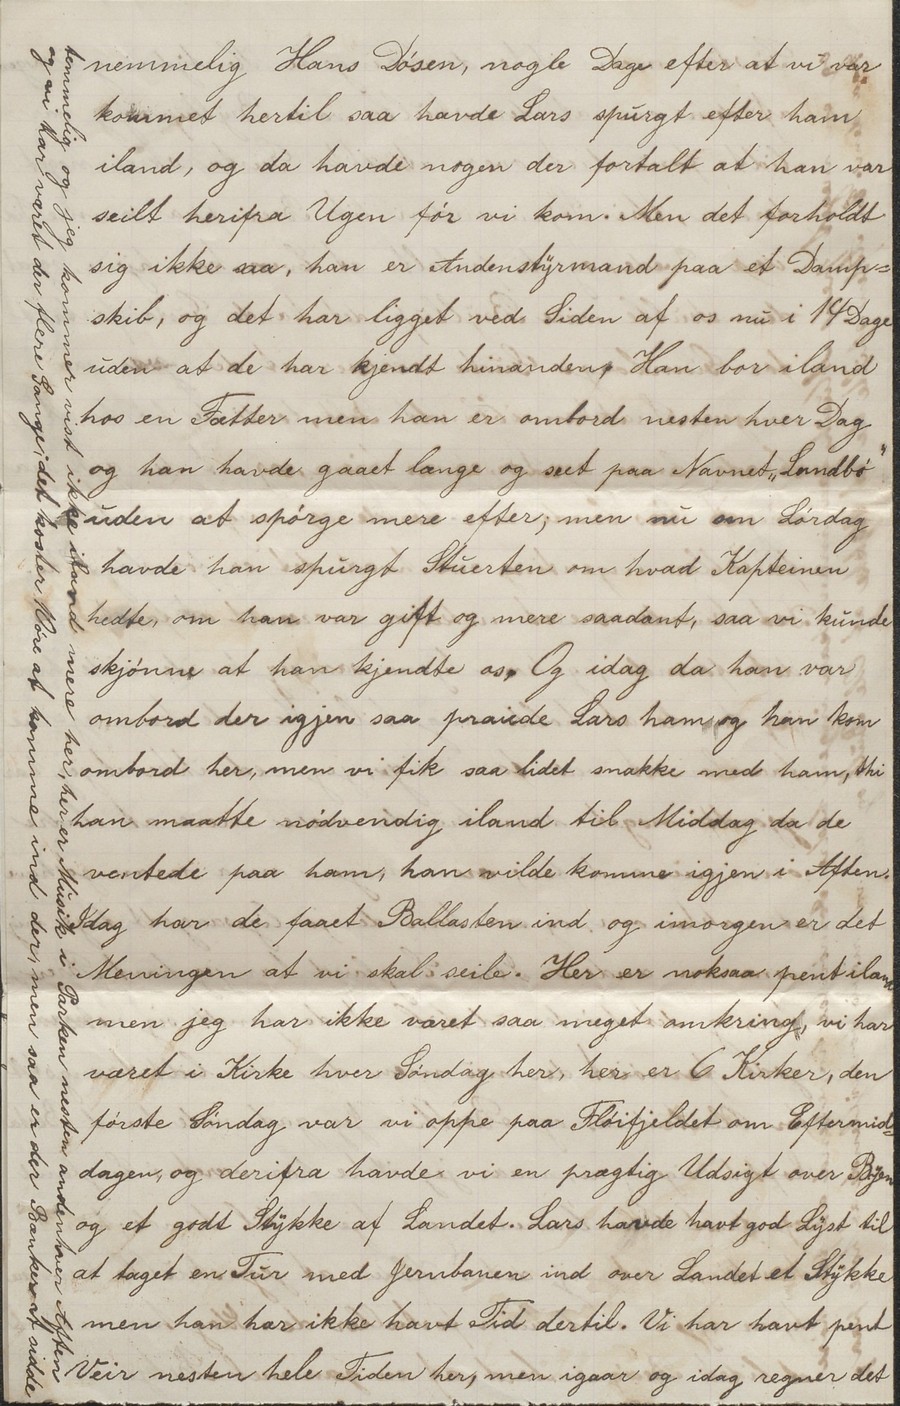 nemmelig Hans Dósen, nogle Dage efter at vi var
kommet hertil saa havde Lars spurgt efter ham
iland, og da havde nogen der fortalt at han var
seilt herifra Ugen fór vi kom. Men det forholdt
sig ikke saa, han er Andenstyrmand paa et Damp=
skib, og det har ligget ved Siden af os nu i 14 Dage
uden at de har kjendt hinanden, Han bor iland
hos en Fætter men han er ombord nesten hver Dag
og han havde gaaet længe og seet paa Navnet „Lundbó"
uden at spórge mere efter, men nu om Lórdag
havde han spurgt Stuerten om hvad Kapteinen
hedte, om han var gift og mere saadant, saa vi kunde
skjónne at han kjendte os, Og idag da han var
ombord der igjen saa praiede Lars ham og han kom
ombord her, men vi fik saa lidet snakke med ham, thi
han maatte nódvendig iland til Middag da de
ventede paa ham, han vilde komme igjen i Aften.
Idag har de faaet Ballasten ind og imorgen er det
Meningen at vi skal seile. Her er noksaa pent iland
men jeg har ikke været saa meget omkring, vi har
været i Kirke hver Sóndag her, her er 6 Kirker, den
fórste Sóndag var vi oppe paa Flóifjeldet om Eftermid=
dagen, og derifra havde vi en prægtig Udsigt over Byen
og et godt Stykke af Landet. Lars havde havt god Lyst til
at taget en Tur med Jernbanen ind over Landet et Stykke
men han har ikke havt Tid dertil. Vi har havt pent
Veir nesten hele Tiden her, men igaar og idag regner det
temmelig og jeg kommer vist ikke iland mere her, her er Musik i Parken nesten anden hver Aften
og vi har været der flere Gange, det koster 10óre at komme ind der, men saa er der Bænker at sidde